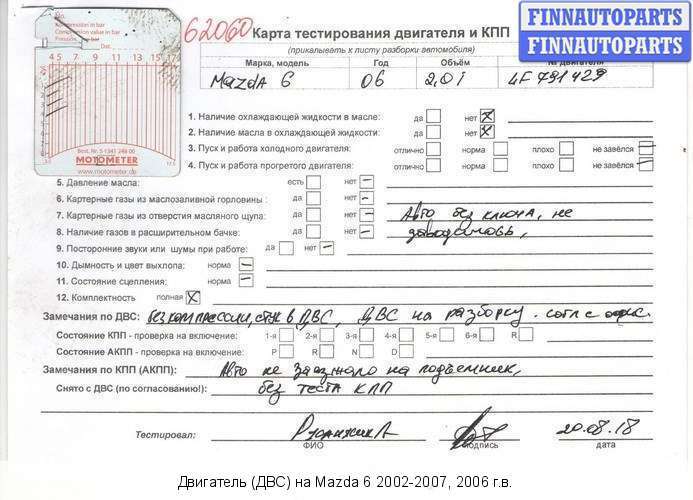 FINNAUTOPARTS
FINNAUTOPARTS
62060
Карта тестирования двигателя и КПП
(прикалывать к листу разборки автомобиля)
Марка, модель Год Объём № двигателя
Mazda 6 06 2,0i LF 791429
Kompression in bar
Compression value in bar
Dat.
4 5 7 9 11 13 15 17
Best. Nr. 5 1341 246 00
MOTOMETER
www.motometer.de
1. Наличие охлаждающей жидкости в масле: да нет X
2. Наличие масла в охлаждающей жидкости: да нет X
3. Пуск и работа холодного двигателя: отлично норма плохо не завёлся –
4. Пуск и работа прогретого двигателя: отлично норма плохо не завёлся –
5. Давление масла: есть нет –
6. Картерные газы из маслозаливной горловины : да нет –
7. Картерные газы из отверстия масляного щупа: да нет –
Авто без ключа, не
8. Наличие газов в расширительном бачке: да нет –
заводилось,
9. Посторонние звуки или шумы при работе: да нет –
10. Дымность и цвет выхлопа: норма –
11. Состояние сцепления: норма –
12. Комплектность полная X
Замечания по ДВС: без компрессии, стук в ДВС, ДВС на разборку. согл с
Состояние КПП - проверка на включение: 1-я 2-я 3-я 4-я 5-я 6-я R
Состояние АКПП - проверка на включение: P R N D
Замечания по КПП (АКПП): Авто не заезжало на подъемник,
Снято с ДВС (по согласованию!): без теста КПП
Тестировал: 20.08.18
ФИО подпись дата
Двигатель (ДВС) на Mazda 6 2002-2007, 2006 г.в.